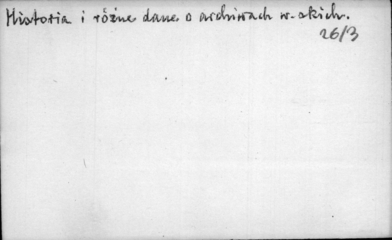 Historia i różne dane o archiwach w-skich.
26/3